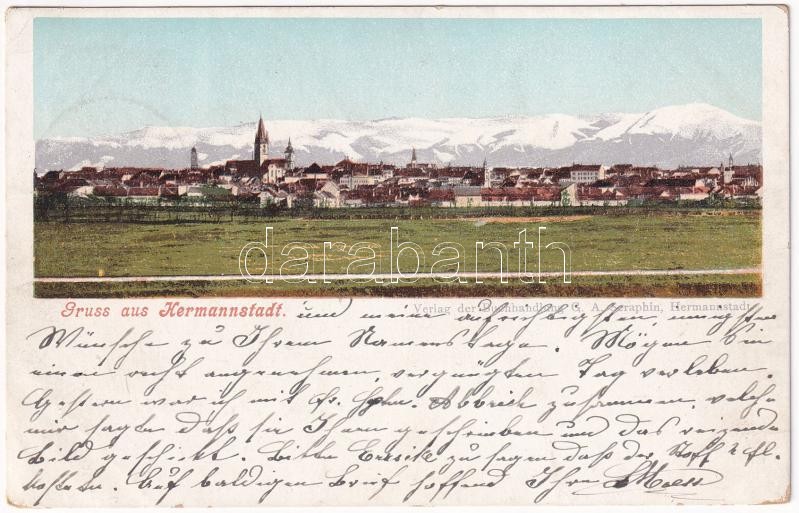 darabanth
Gruss aus Hermannstadt. Verlag der Buchhandlung G. A. Seraphin, Hermannstadt
und meine aufrichtigsten, innigsten
Wünsche zu Ihrem Namenstage. Mögen Sie
einen recht angenehmen, vergnügten Tag verleben.
Gestern war ich mit zusammen, welche
mir sagte daß sie Ihnen geschrieben und das reizende
Bild geschickt. Bitte zu sagen daß der Stoff 2 fl.
kostete. Auf baldigen Brief hoffend Ihre